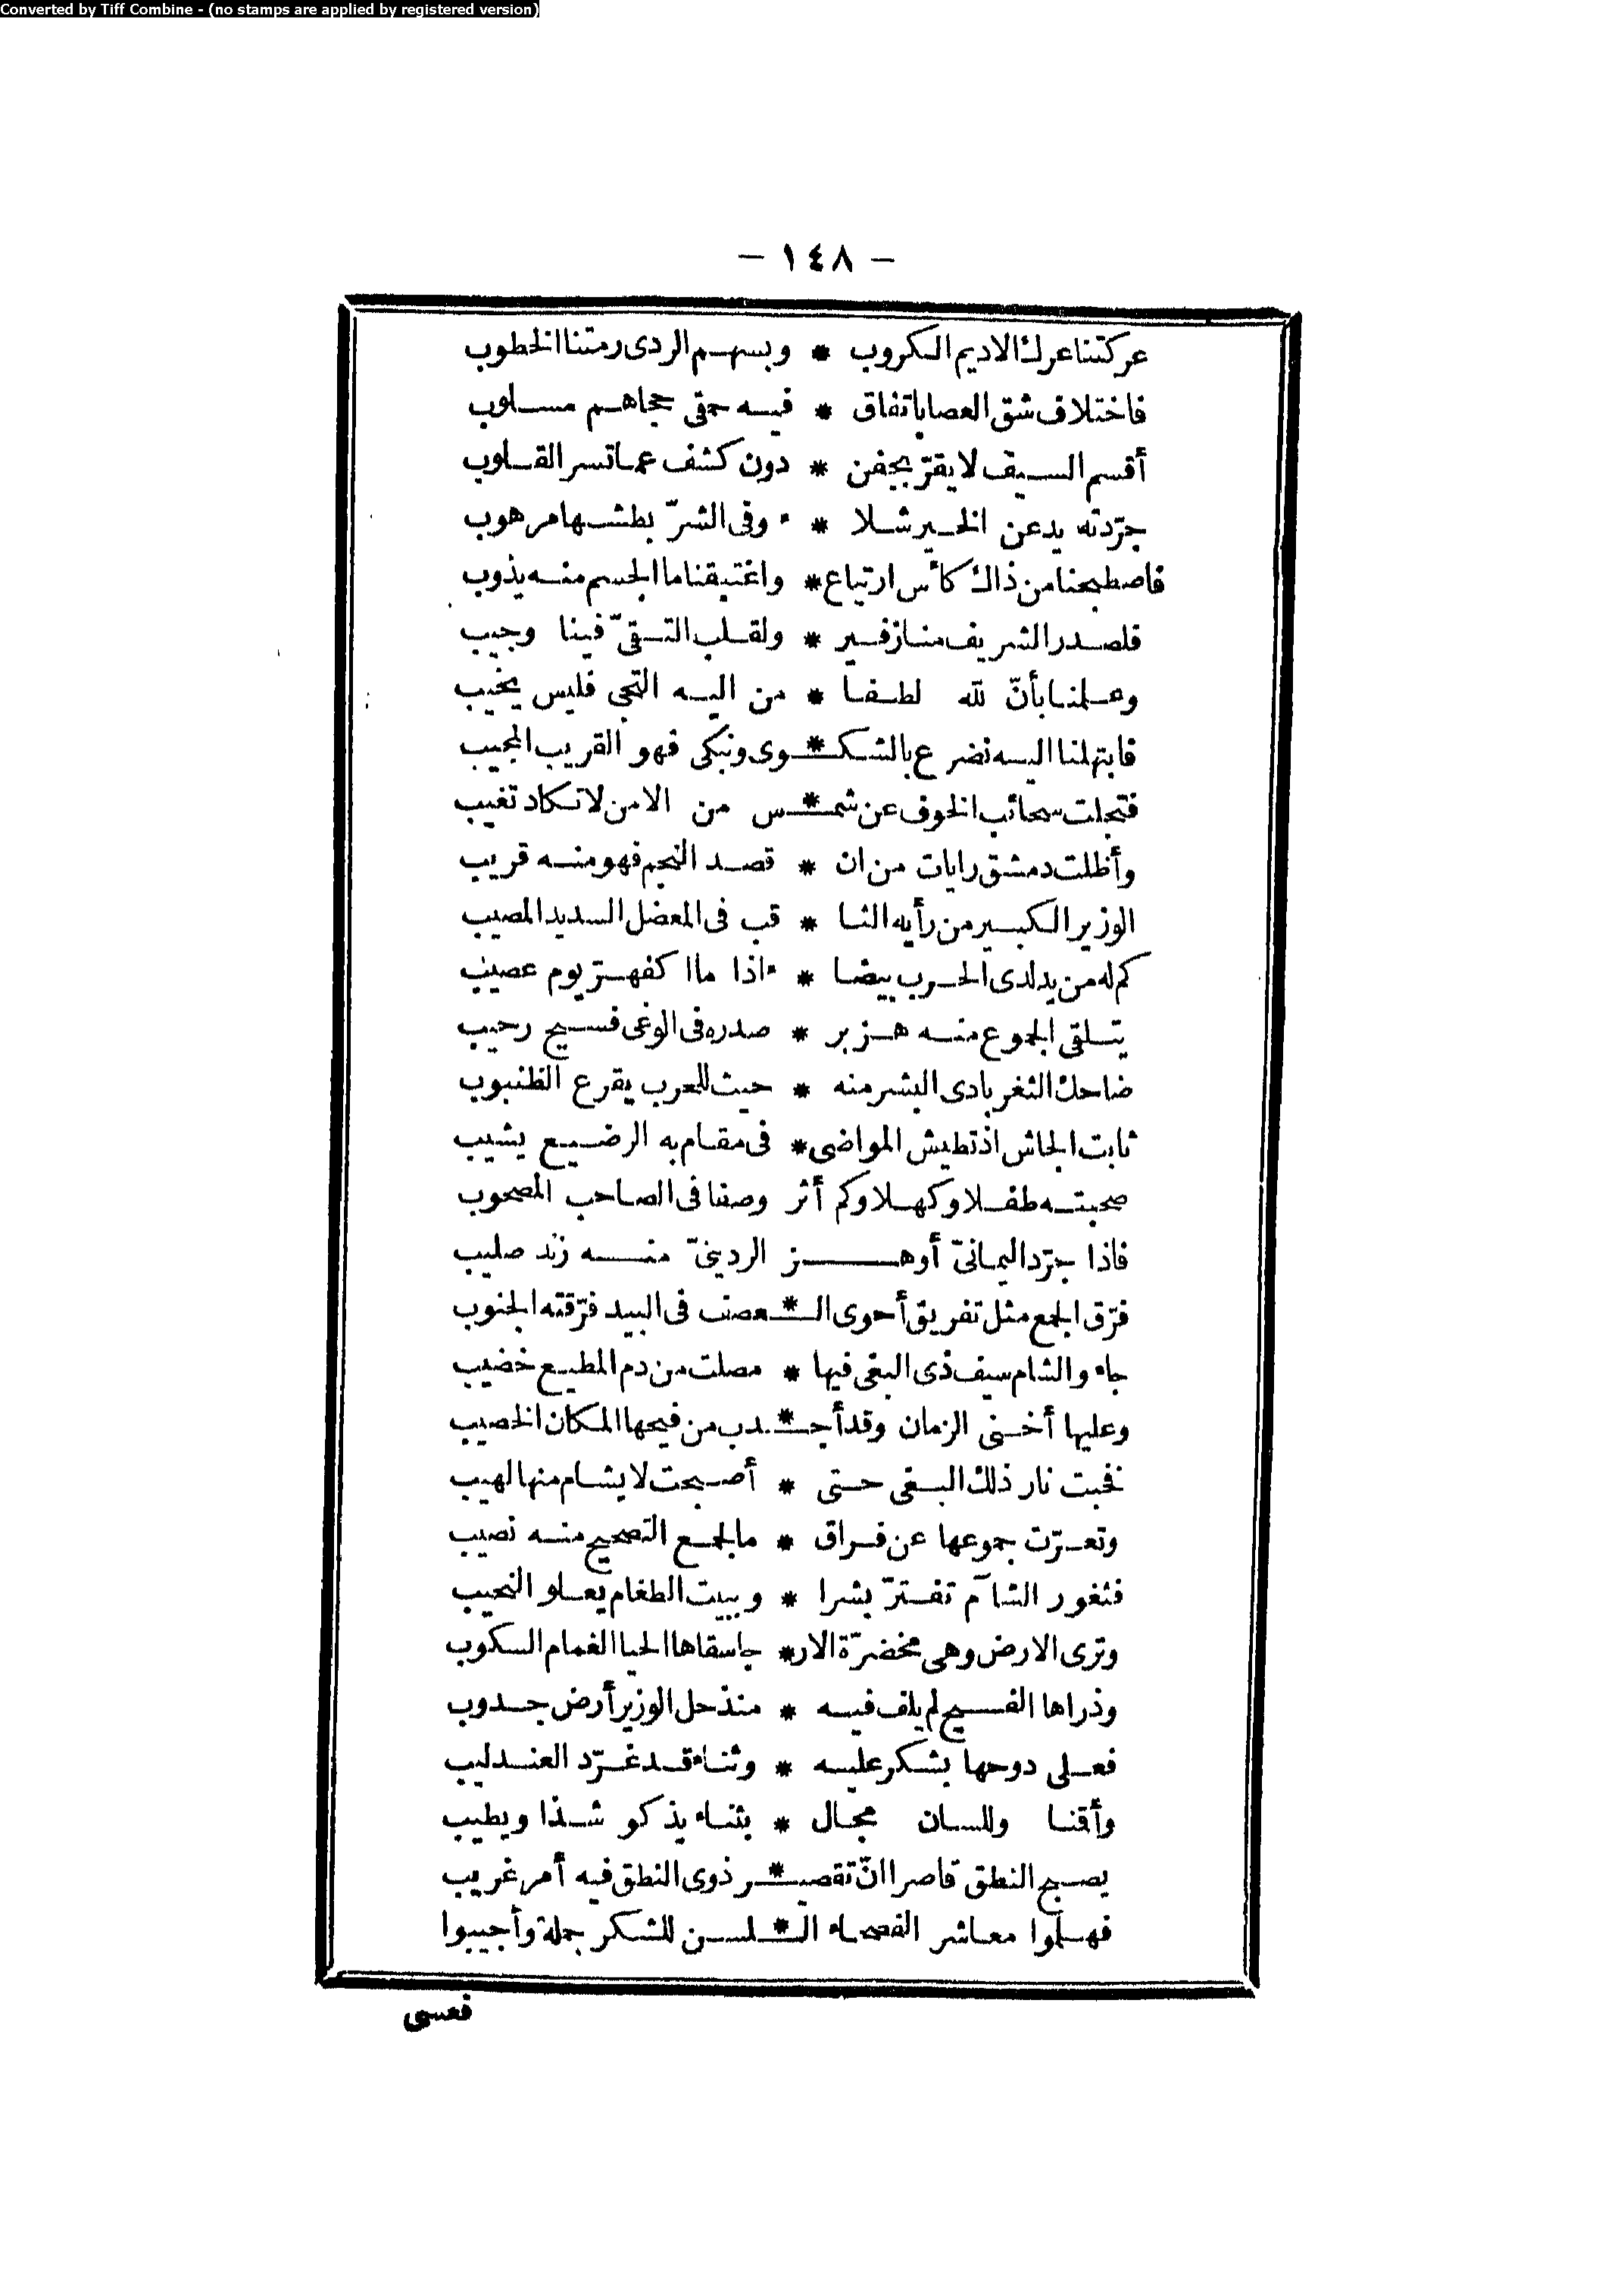 Converted by Tiff Combine - (no stamps are applied by registered version)
— ١٤٨ —
عركتنا عرك الاديم الكروب * وبسهم الردى رمتنا الخطوب
فاختلاف شق العصا باتفاق * فيه حمقى حجاهم مسلوب
أقسم السيف لا يقرّ بجفن * دون كشف عما تسر القلوب
جرّدته يد عن الخير شلا * ء وفى الشرّ بطشها مرهوب
فاصطبحنا من ذاك كأس ارتياع * واغتبقنا ما الجسم منه يذوب
فلصدر الشريف منا زفير * ولقلب التقىّ فينا وجيب
وعلمنا بأنّ لله لطفا * من اليه التجى فليس يخيب
فابتهلنا اليه نضرع بالشكـ * ـوى ونبكى فهو القريب المجيب
فتجلت سحائب الخوف عن شمـ * ـس من الامن لا تكاد تغيب
وأظلت دمشق رايات من ان * قصد النجم فهو منه قريب
الوزير الكبير من رأيه الثا * قب فى المعضل السديد المصيب
كم له من يد لدى الحرب بيضا * ء اذا ما اكفهرّ يوم عصيب
يتلقى الجموع منه هزبر * صدره فى الوغى فسيح رحيب
ضاحك الثغر بادى البشر منه * حيث للحرب يقرع الظنبوب
ثابت الجاش اذ تطيش المواضى * فى مقام به الرضيع يشيب
صحبته طفلا وكهلا وكم أثر وصفا فى الصاحب المصحوب
فاذا جرّد اليمانىّ أو هـــز الردينىّ منه زند صليب
فرّق الجمع مثل تفريق أحوى الـ * ـعصف فى البيد فرّقته الجنوب
جاء والشام سيف ذى البغى فيها * مصلت من دم المطيع خضيب
وعليها أخنى الزمان وقد أجـ * ـدب من فيحها المكان الخصيب
فخبت نار ذلك البغى حتى * أصبحت لا يشام منها لهيب
وتعرّت جموعها عن فراق * ما لجمع التصحيح منه نصيب
فثغور الشآم تفترّ بشرا * وبيت الطغام يعلو النحيب
وترى الارض وهى مخضرّة الار * جا سقاها الحيا الغمام السكوب
وذراها الفسيح لم يلف فيه * منذ حل الوزير أرض جدوب
فعلى دوحها بشكر عليه * وثناء قد غرّد العندليب
وأقنا وللسان مجال * بثناء يذكو شذا ويطيب
يصبح النطق قاصرا انّ تقصيـ * ـر ذوى النطق فيه أمر غريب
فهلموا معاشر الفصحاء الـ * ـلسن للشكر جملة وأجيبوا
فعسى